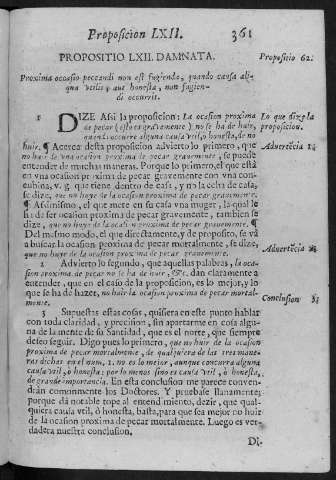 Proposicion LXII.
361
PROPOSITIO LXII. DAMNATA.
Propositio 62.
Proxima occasio peccandi non est fugienda, quando causa ali-
qua vtilis, aut honesta, non fugien-
di occurrit.
1 DIZE Assi la proposicion: La ocasion proxima
de pecar (esto es gravemente) no se ha de huir,
quando ocurre alguna causa vtil, ò honesta, de no
huir. ¶ Acerca desta proposicion advierto lo primero, que
no huir de vna ocasion proxima de pecar gravemente, se puede
entender de muchas maneras. Porque lo primero, el que està
en vna ocasion proxima de pecar gravemente con vna con-
cubina, v. g. que tiene dentro de casa, y no la echa de casa,
se dize, que no huye de la ocasion proxima de pecar gravemente.
¶ Assimismo, el que mete en su casa vna muger, la qual le
ha de ser ocasion proxima de pecar gravemente, tambien se
dize, que no huye de la ocasion proxima de pecar gravemente. ¶
Del mismo modo, el que directamente, y de proposito, se và
à buscar la ocasion proxima de pecar mortalmente, se dize,
que no huye de la ocasion proxima de pecar gravemente.
2 Advierto lo segundo, que aquellas palabras, la oca-
sion proxima de pecar no se ha de huir, &c. dan claramente à
entender, que en el caso de la proposicion, es lo mejor, y lo
que se ha de hazer, no huir la ocasion proxima de pecar mortal-
mente.
3 Supuestas estas cosas, quisiera en este punto hablar
con toda claridad, y precision, sin apartarme en cosa algu-
na de la mente de su Santidad, que es el norte, que siempre
deseo seguir. Digo pues lo primero, que no huir de la ocasion
proxima de pecar mortalmente, de qualquiera de las tres mane-
ras dichas en el num. 1. no es lo mejor, aunque concurra alguna
causa vtil, ò honesta: por lo menos sino es causa vtil, ò honesta,
de grande importancia. En esta conclusion me parece conven-
dràn comunmente los Doctores. Y pruebase llanamente;
porque dà notable tope al entendimiento, dezir, que qual-
quiera causa vtil, ò honesta, basta, para que sea mejor no huir
de la ocasion proxima de pecar mortalmente. Luego es ver-
dadera nuestra conclusion.
Di-
Lo que dize la
proposicion.
Advertẽcia 1.
Advertẽcia 2.
Conclusion